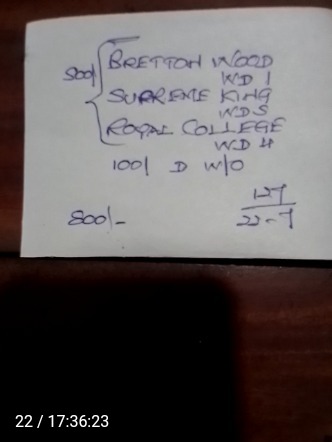 BRETTON WOOD
WD 1
SUPREME KING
WD 5
ROYAL COLLEGE
WD 4
100/ D W/O
800/-
127
22-7
22 / 17:36:23